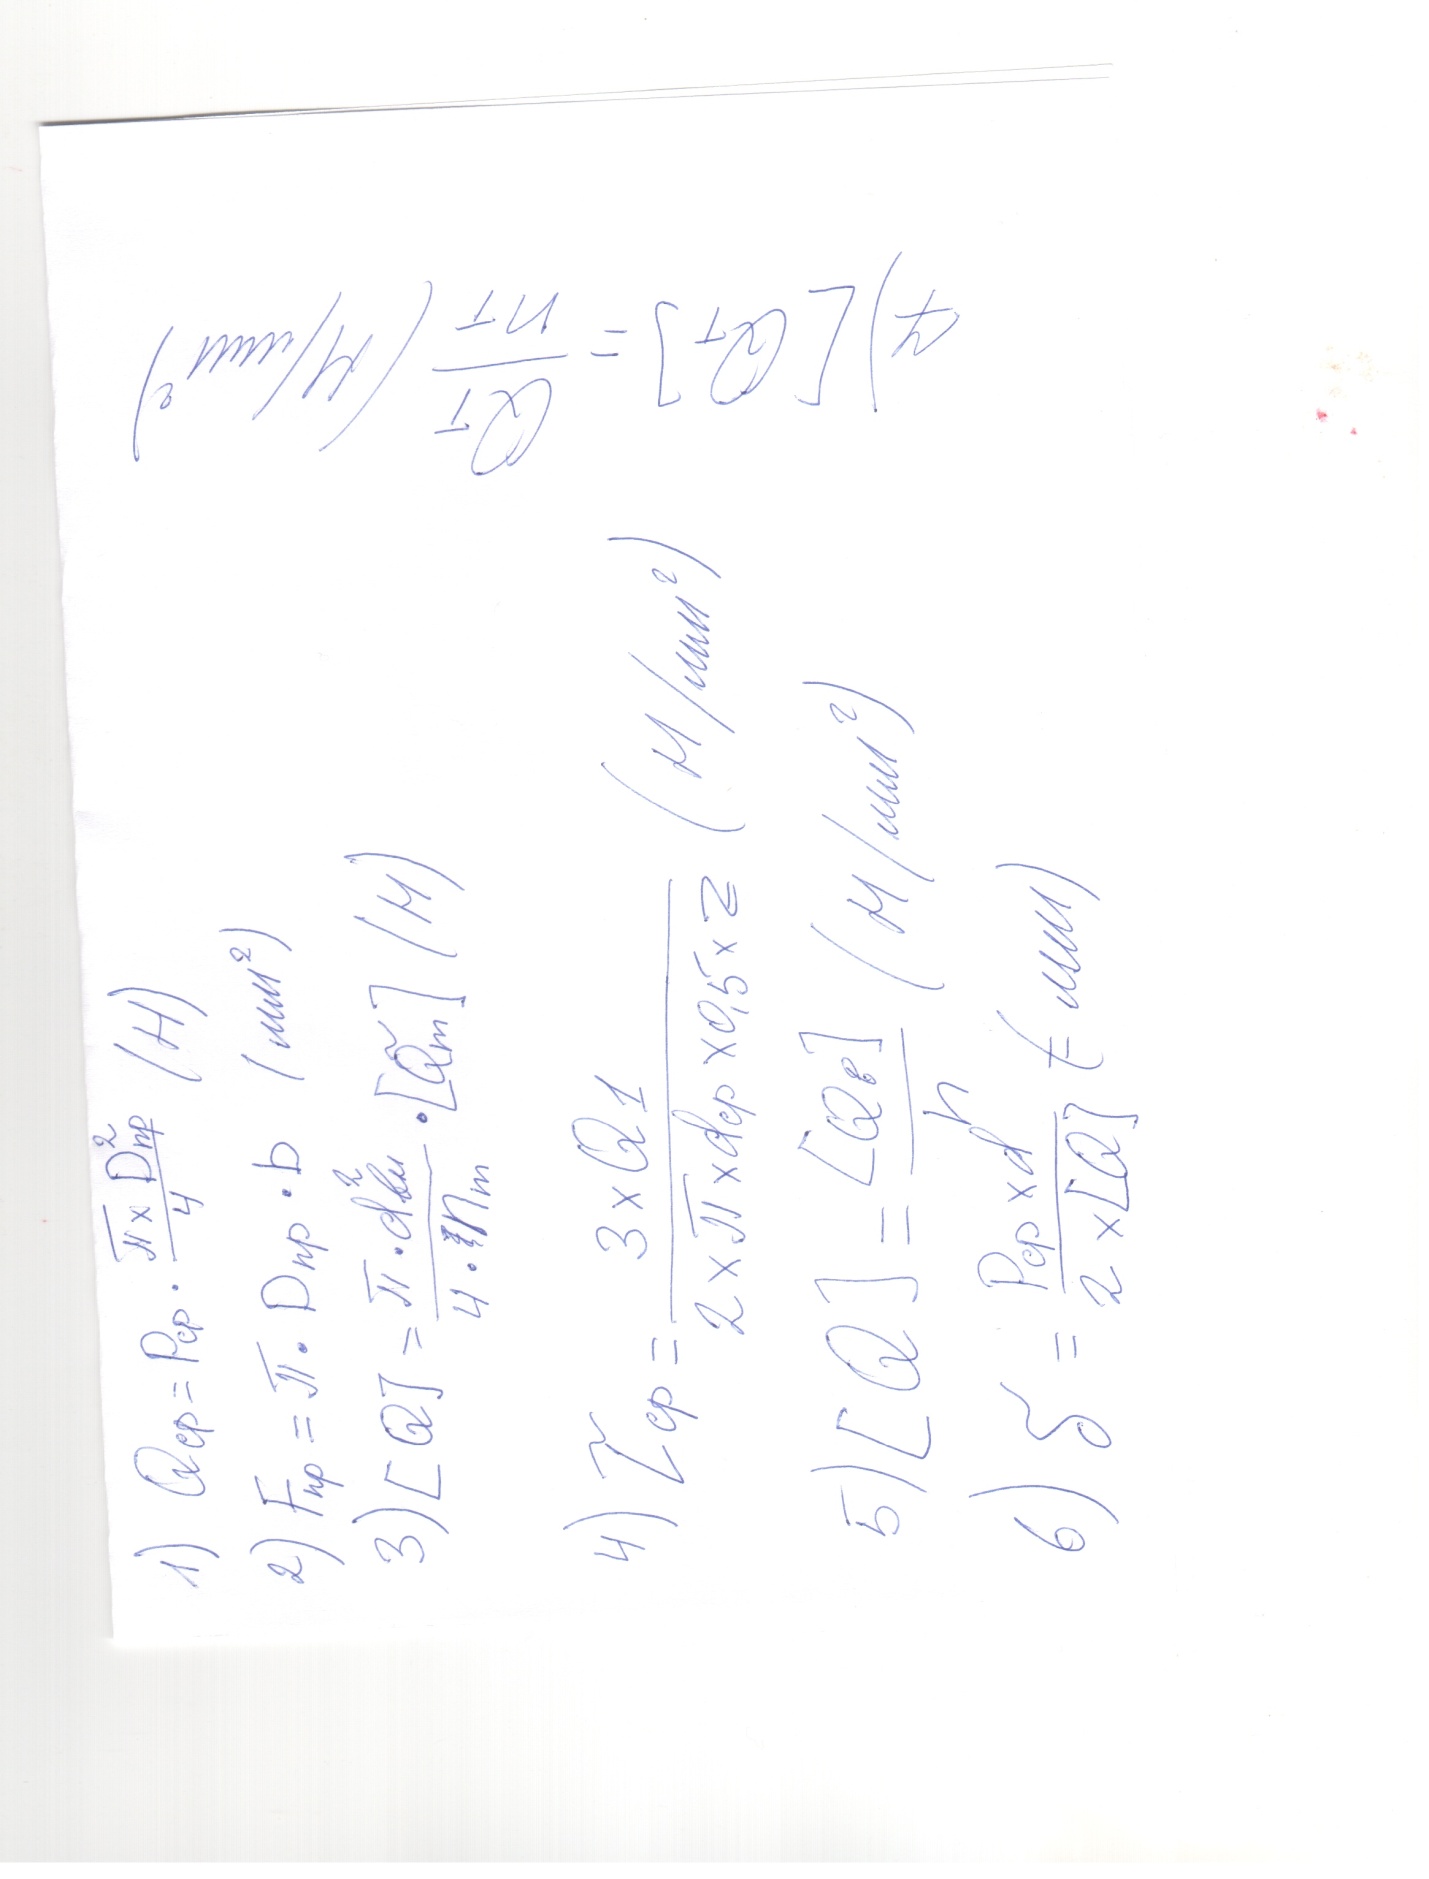 1) Qср = Pср · π x Dпр² / 4 (Н)
2) Fпр = π · Dпр · b (мм²)
3) [Q] = π · dвн² / 4 · nт · [Qт] (Н)
4) τср = 3 x Q1 / 2 x π x dср x 0,5 x z (Н/мм²)
5) [Q] = [Qв] / n (Н/мм²)
6) δ = Pср x d / 2 x [Q] (мм)
7) [Qт] = Qт / nт (Н/мм²)